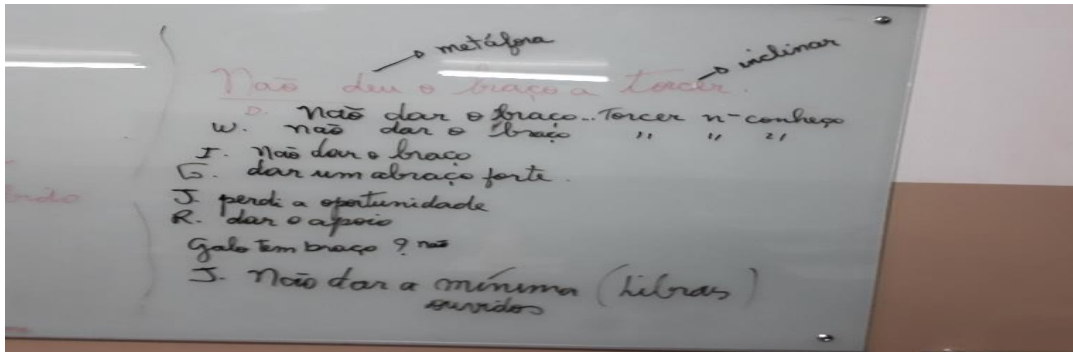 metáfora
inclinar
Não deu o braço a torcer.
D. Não dar o braço... Torcer n-conheço
W. não dar o braço " " "
I. Não dar o braço
G. dar um abraço forte.
J. perdi a oportunidade
R. dar o apoio
Galo tem braço ? não
J. Não dar a mínima (Libras)
ouvidos